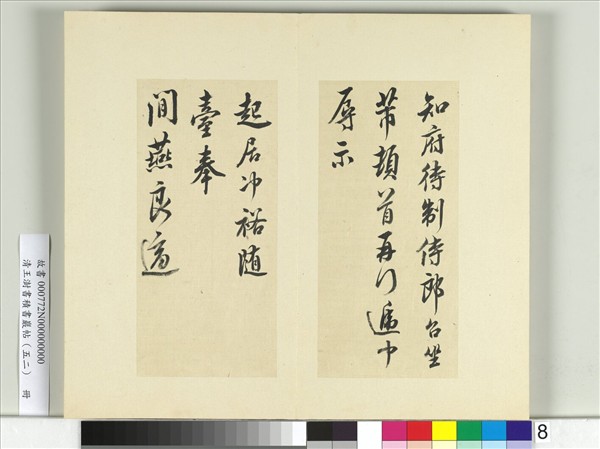 知府待制侍郎台坐
芾頓首再行遞中
辱示
起居冲裕随
臺奉
間燕良適
故書 000772N000000000
清王澍書積書巖帖（五二） 冊
8